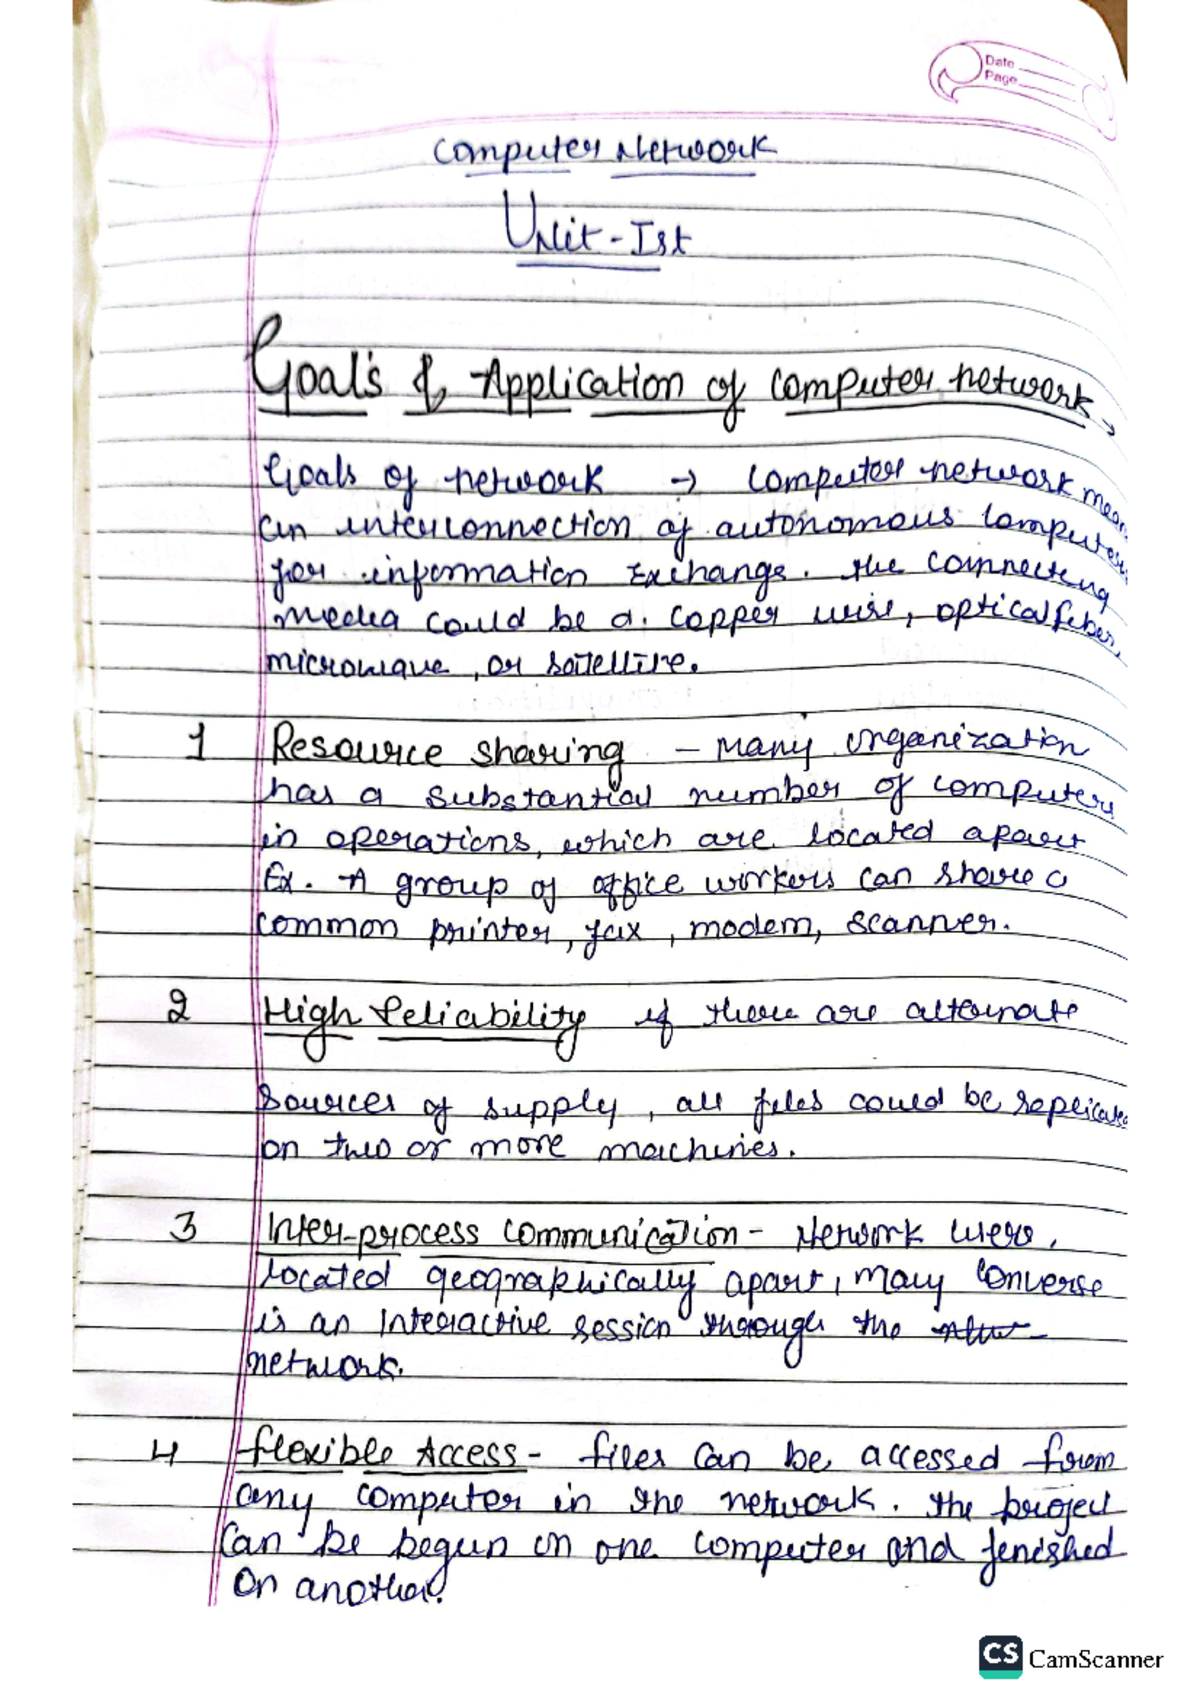 Date
Page
Computer Network
Unit-Ist
Goal's & Application of computer network →
Goals of network → Computer network mean
an interconnection of autonomous computers
for information Exchange. the connecting
media could be a. copper wire, optical fiber,
microwave, or satellite.
1 Resource sharing - Many organization
has a substantial number of computers
in operations, which are located apart
Ex. A group of office workers can share a
common printer, fax, modem, scanner.
2 High Reliability if there are alternate
Sources of supply, all files could be replicate
on two or more machines.
3 Inter-process communication - Network
located geographically apart, many Converse
is an Interactive session through the
network.
4 flexible Access - files can be accessed from
any computer in the network. the project
Can be begun on one computer and finished
on another.
CS CamScanner